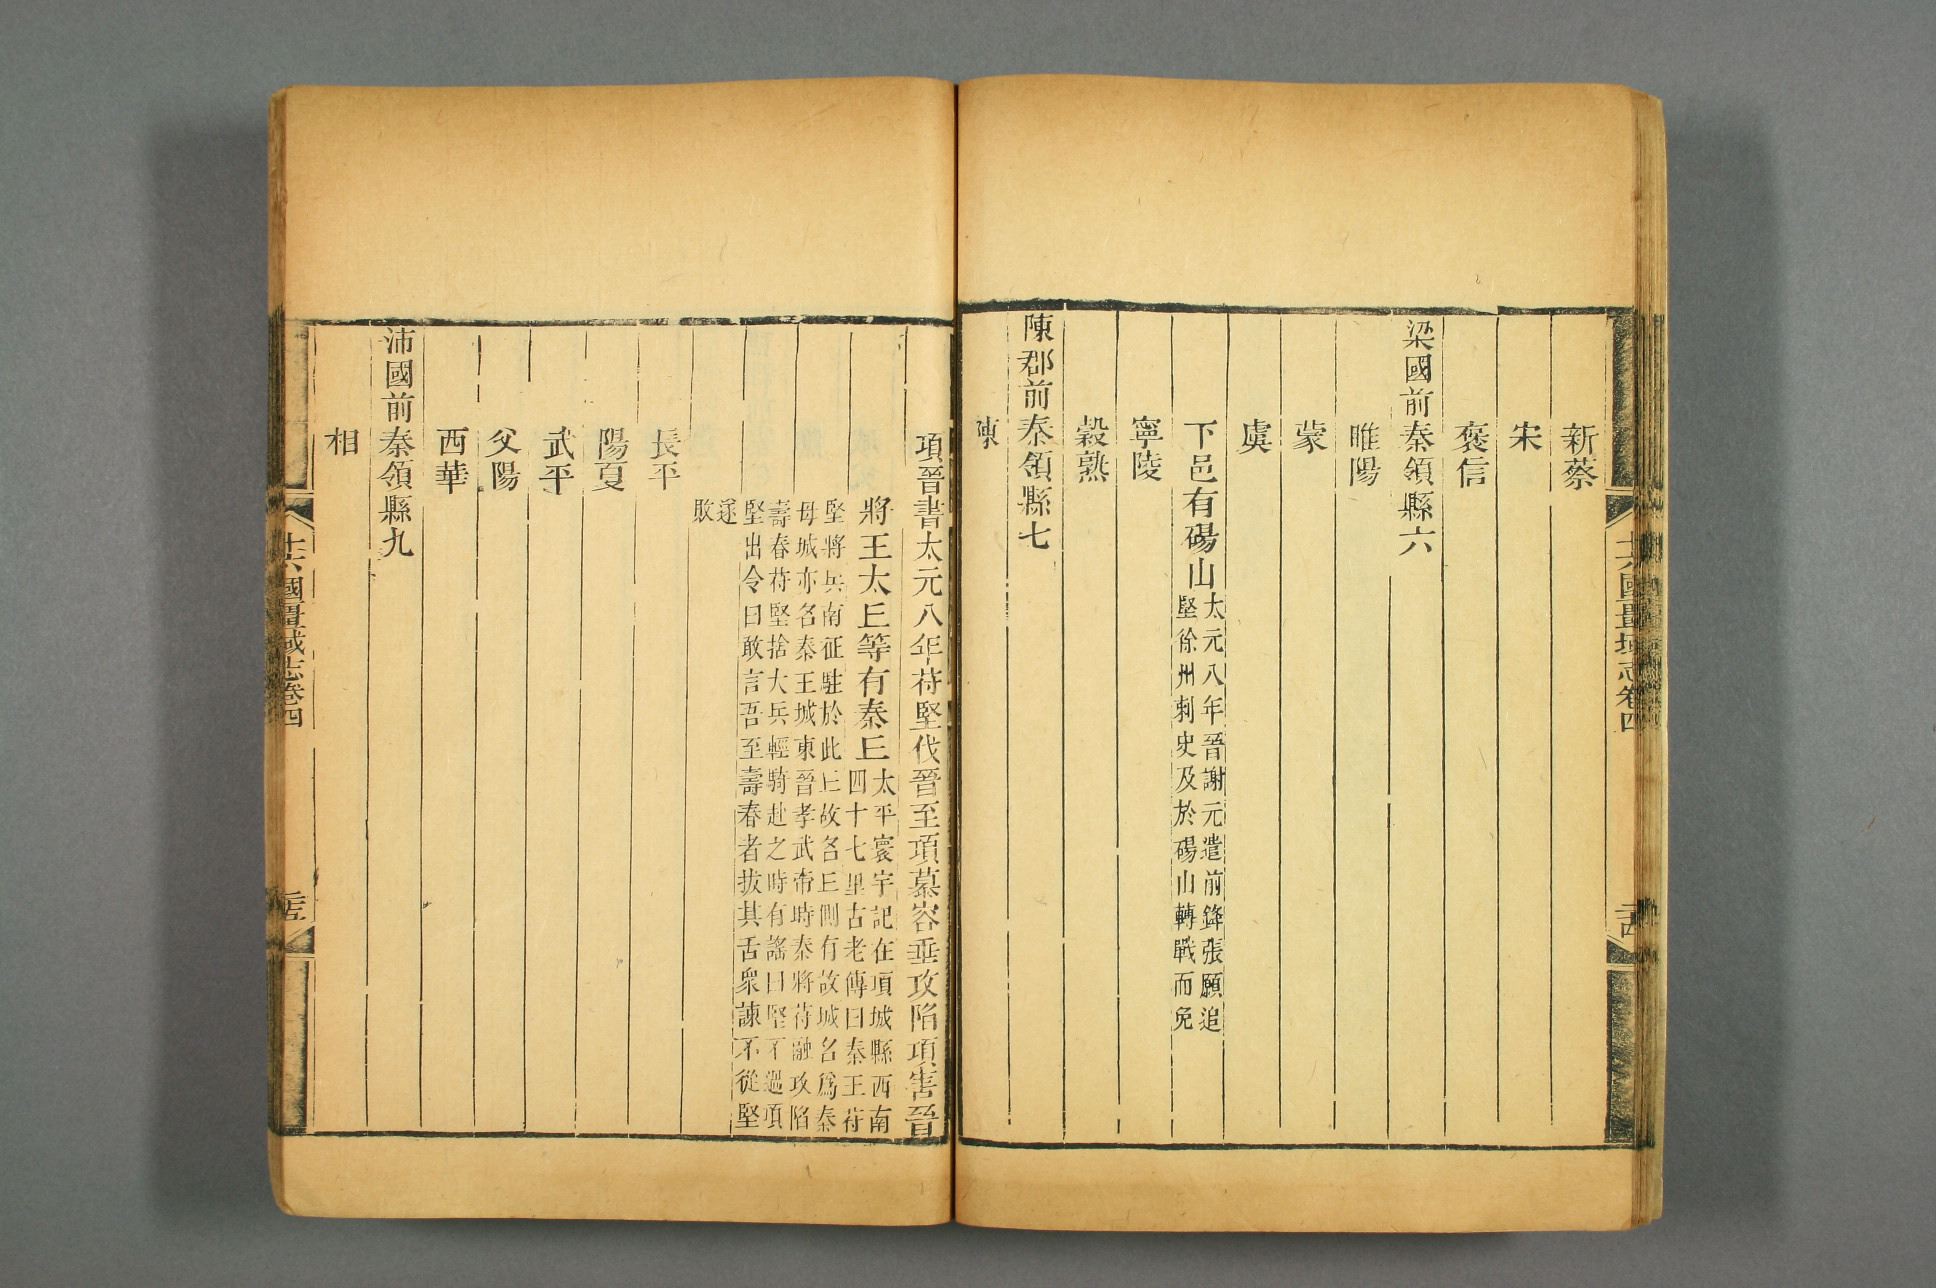 十六國疆域志卷四
二十四
新蔡
宋
褒信
梁國前秦領縣六
睢陽
蒙
虞
下邑有碭山太元八年晉謝元遣前鋒張願追
堅徐州刺史及於碭山轉戰而免
寧陵
穀熟
陳郡前秦領縣七
陳
項晉書太元八年苻堅伐晉至項慕容垂攻陷項害晉
將王太丘等有秦丘太平寰宇記在項城縣西南
四十七里古老傳曰秦王苻
堅將兵南征駐於此丘故名丘側有故城名爲秦
母城亦名秦王城東晉孝武帝時秦將苻融攻陷
壽春苻堅捨大兵輕騎赴之時有謠曰堅不過項
堅出令曰敢言吾至壽春者拔其舌衆諫不從堅
遂
敗
長平
陽夏
武平
父陽
西華
沛國前秦領縣九
相
十六國疆域志卷四
二十五